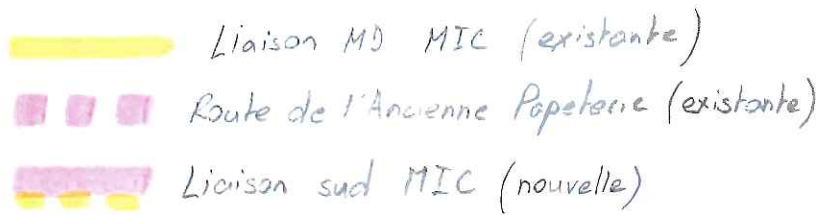 Liaison MD MIC (existante)
Route de l'Ancienne Papeterie (existante)
Liaison sud MIC (nouvelle)